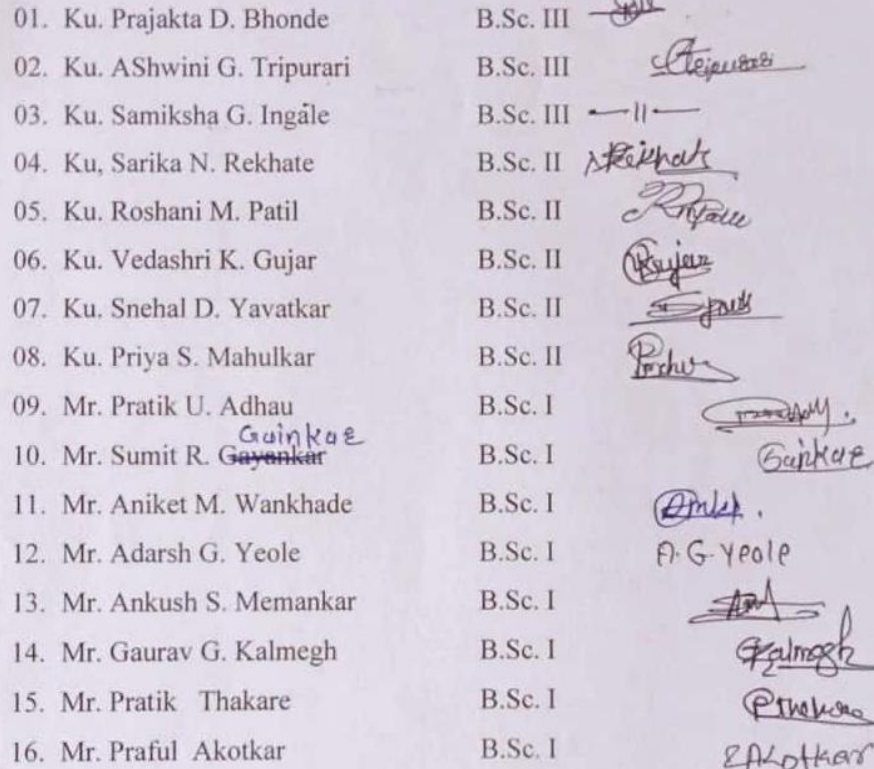 01. Ku. Prajakta D. Bhonde B.Sc. III
02. Ku. AShwini G. Tripurari B.Sc. III Tripurari
03. Ku. Samiksha G. Ingale B.Sc. III —11—
04. Ku, Sarika N. Rekhate B.Sc. II Rekhate
05. Ku. Roshani M. Patil B.Sc. II
06. Ku. Vedashri K. Gujar B.Sc. II Gujar
07. Ku. Snehal D. Yavatkar B.Sc. II
08. Ku. Priya S. Mahulkar B.Sc. II
09. Mr. Pratik U. Adhau B.Sc. I
Gainkar
10. Mr. Sumit R. Gayankar B.Sc. I Gainkar
11. Mr. Aniket M. Wankhade B.Sc. I
12. Mr. Adarsh G. Yeole B.Sc. I A.G.Yeole
13. Mr. Ankush S. Memankar B.Sc. I
14. Mr. Gaurav G. Kalmegh B.Sc. I GKalmegh
15. Mr. Pratik Thakare B.Sc. I
16. Mr. Praful Akotkar B.Sc. I